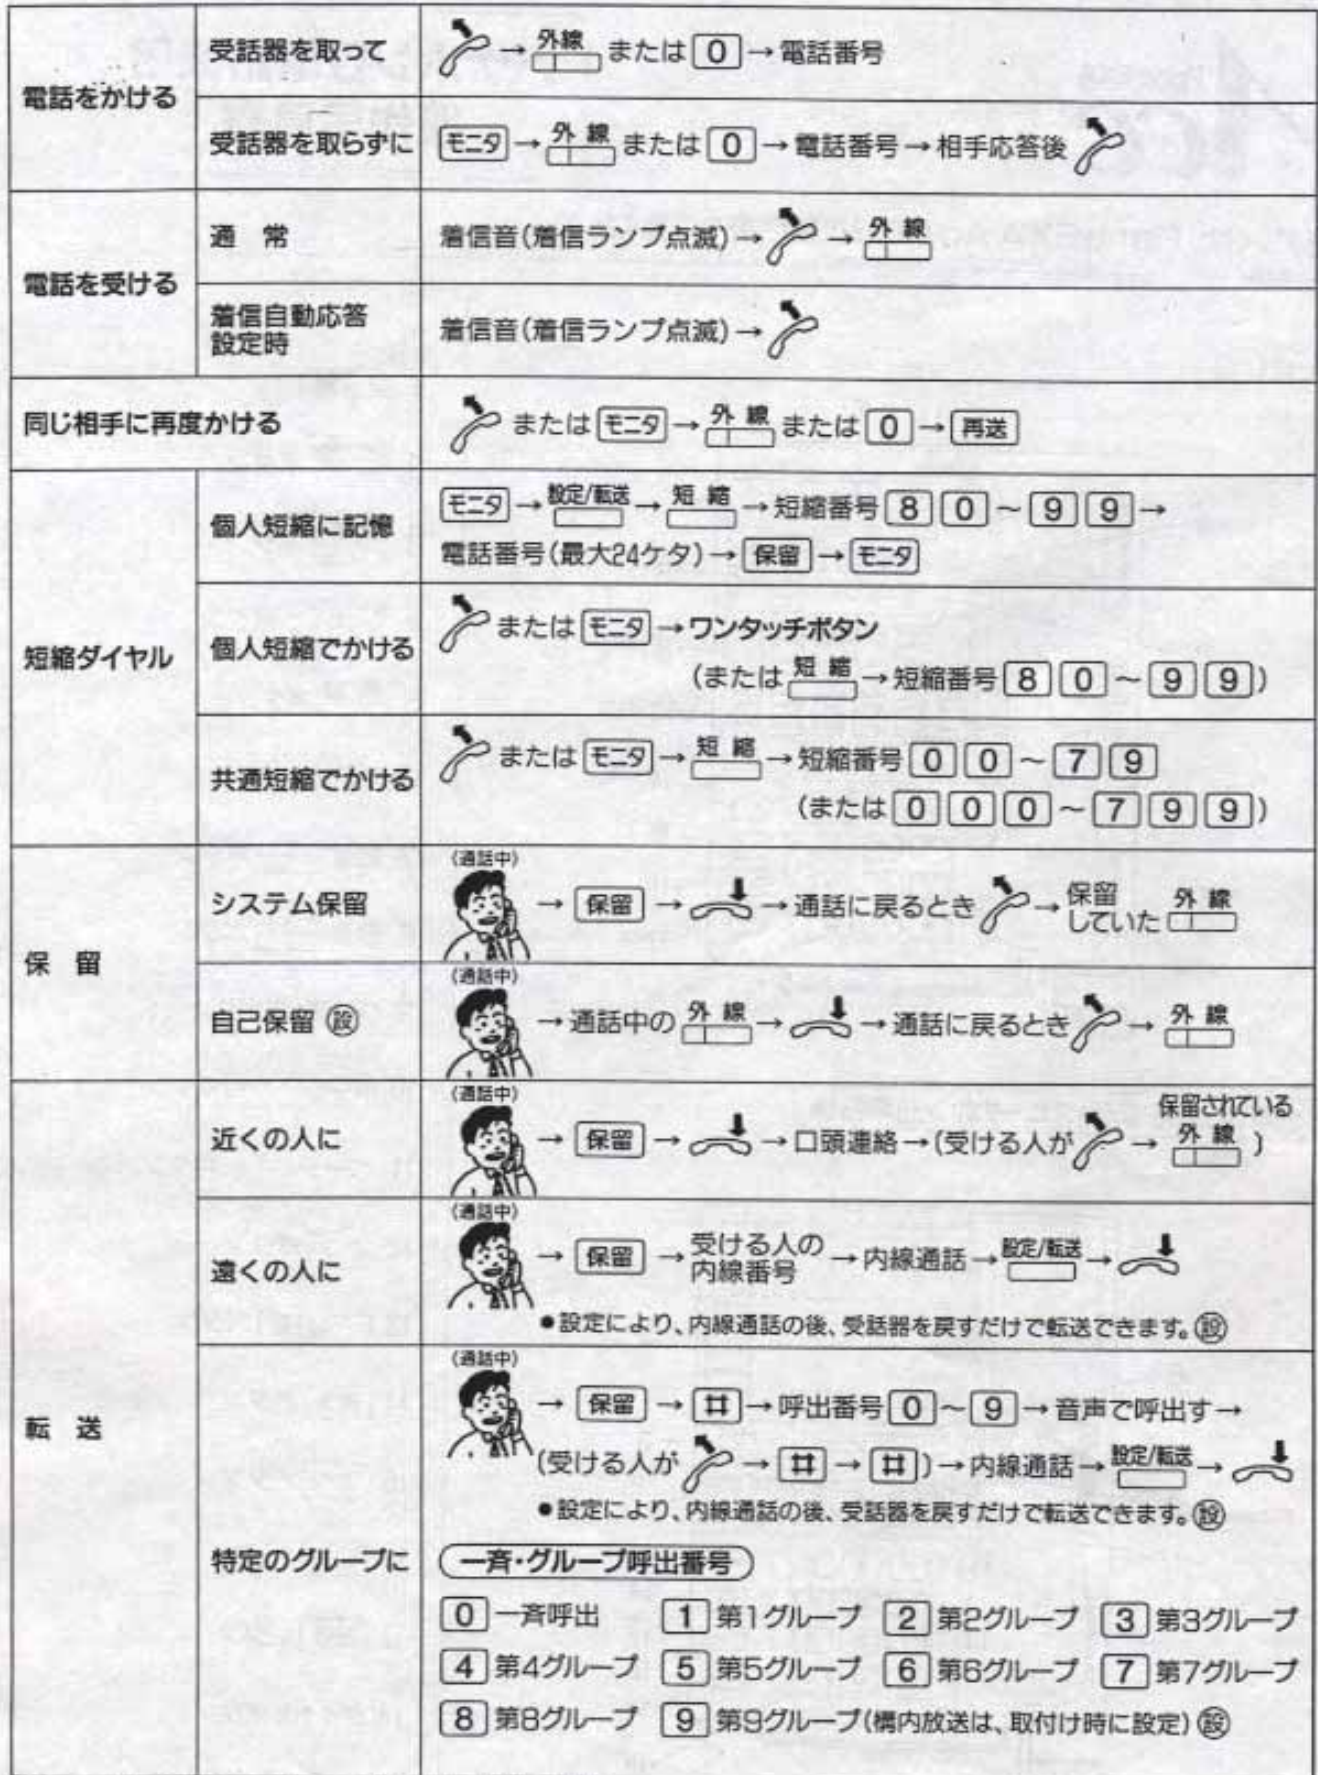 電話をかける
受話器を取って
→ 外線 または 0 → 電話番号
受話器を取らずに
モニタ → 外線 または 0 → 電話番号 → 相手応答後
電話を受ける
通 常
着信音(着信ランプ点滅)→ → 外線
着信自動応答
設定時
着信音(着信ランプ点滅)→
同じ相手に再度かける
または モニタ → 外線 または 0 → 再送
短縮ダイヤル
個人短縮に記憶
モニタ → 設定/転送 → 短縮 → 短縮番号 8 0 ~ 9 9 →
電話番号(最大24ケタ)→ 保留 → モニタ
個人短縮でかける
または モニタ → ワンタッチボタン
(または 短縮 → 短縮番号 8 0 ~ 9 9)
共通短縮でかける
または モニタ → 短縮 → 短縮番号 0 0 ~ 7 9
(または 0 0 0 ~ 7 9 9)
保 留
システム保留
(通話中)
→ 保留 → → 通話に戻るとき → 保留していた 外線
自己保留 設
(通話中)
→ 通話中の 外線 → → 通話に戻るとき → 外線
転 送
近くの人に
(通話中)
→ 保留 → → 口頭連絡 → (受ける人が → 保留されている 外線)
遠くの人に
(通話中)
→ 保留 → 受ける人の内線番号 → 内線通話 → 設定/転送 →
●設定により、内線通話の後、受話器を戻すだけで転送できます。設
特定のグループに
(通話中)
→ 保留 → # → 呼出番号 0 ~ 9 → 音声で呼出す →
(受ける人が → # → #) → 内線通話 → 設定/転送 →
●設定により、内線通話の後、受話器を戻すだけで転送できます。設
一斉・グループ呼出番号
0 一斉呼出 1 第1グループ 2 第2グループ 3 第3グループ
4 第4グループ 5 第5グループ 6 第6グループ 7 第7グループ
8 第8グループ 9 第9グループ(構内放送は、取付け時に設定) 設